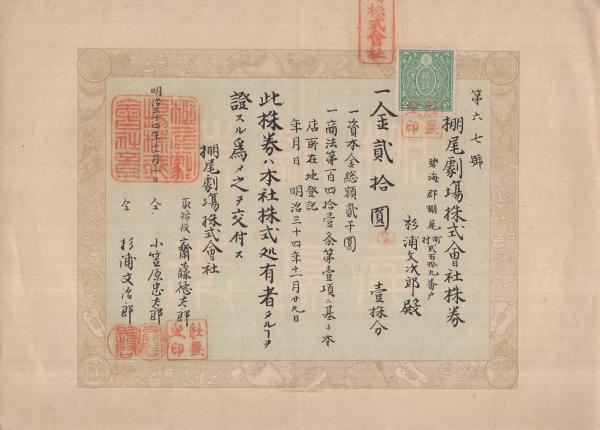 第六七號
棚尾劇場株式會社株券
碧海郡棚尾村貳百拾九番戶
杉浦文次郎殿
一金貳拾圓 壹株分
一資本金総額貳千圓
一商法第百四拾壹条第壹項ニ基キ本
店所在地登記
年月日 明治三十四年十一月廿九日
此株券ハ本社株式処有者タルヿヲ
證スル為メ之ヲ交付ス
棚尾劇場株式會社
明治三十四年十二月一日
取締役 齋藤德太郎
仝 小笠原忠太郎
仝 杉浦文治郎
株式會社
社長之印
社長之印
棚尾劇場株式會社